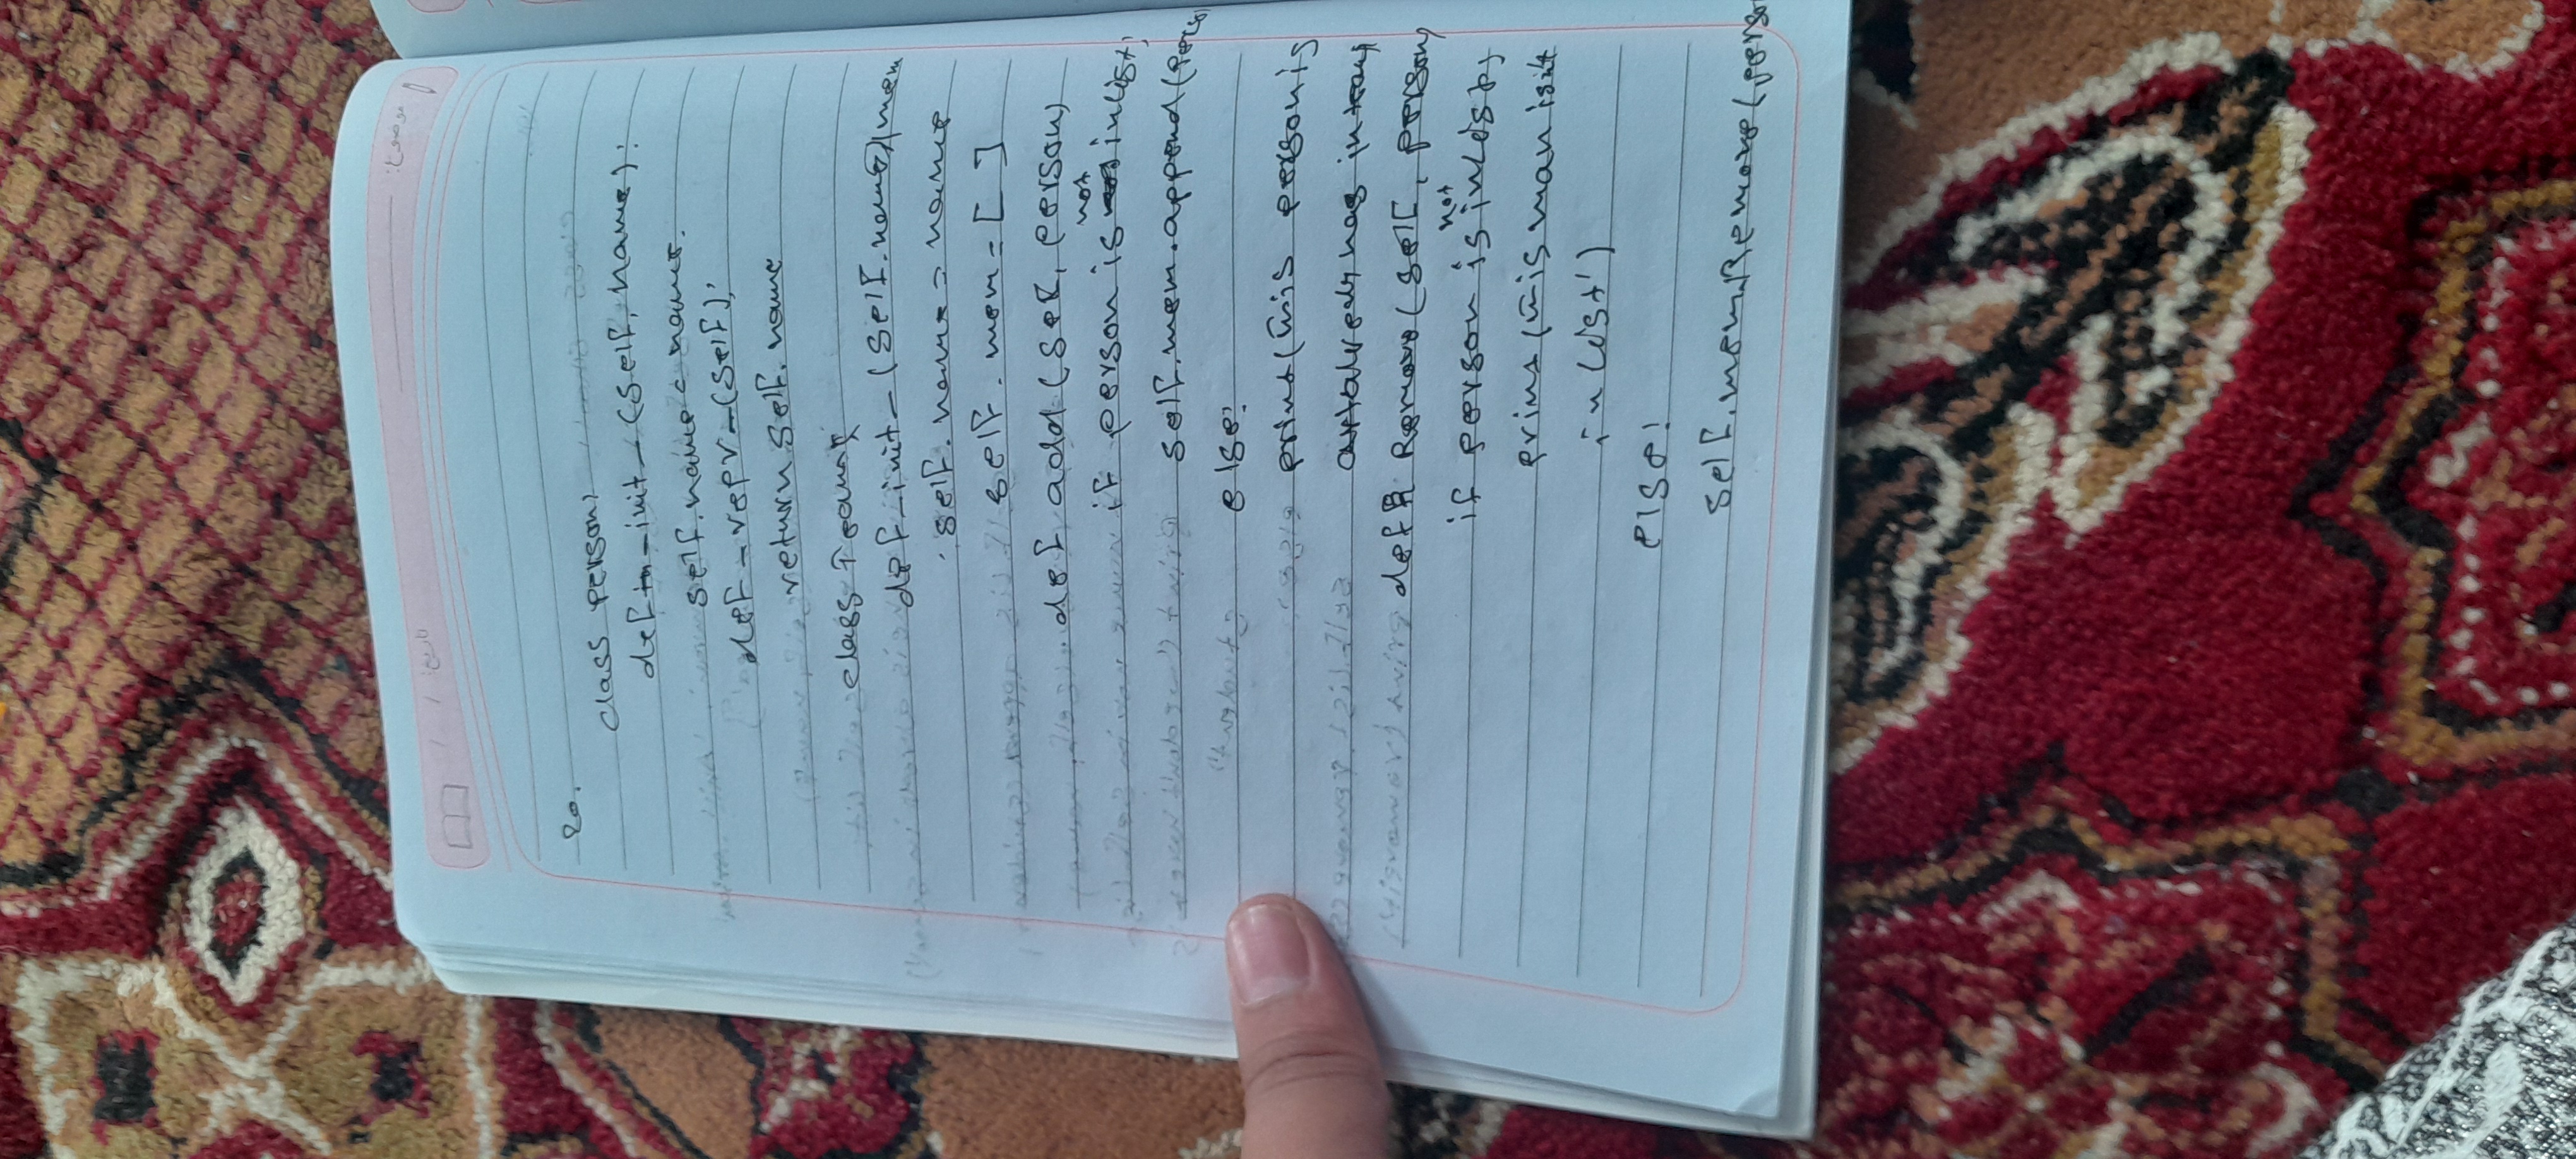 موضوع:
تاریخ: / /
20.
class person:
def __init__(self, name):
self.name = name.
def __repr__(self):
return self.name
class Team:
def __init__(self.name) mem
self.name = name
self.mem = [ ]
def add (self, person)
if person is not in list:
self.mem.append(Perso
else:
print('this person is
already has in team
def Remove (self, person)
if person is not in list:
print('this man isn't
in list')
else:
self.mem.Remove(perso